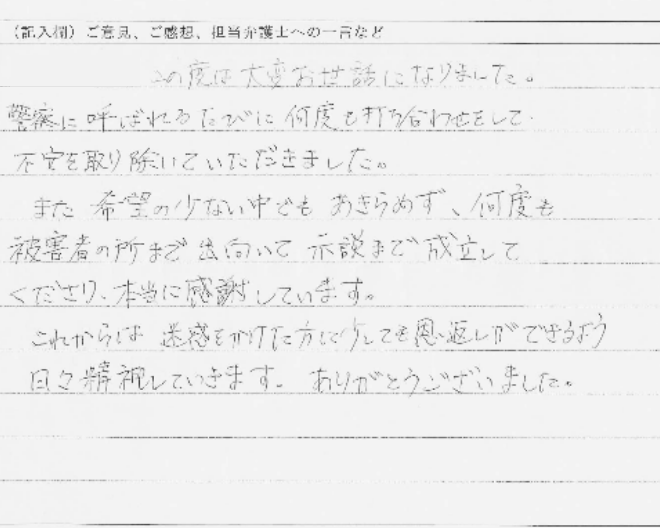 （記入欄）ご意見、ご感想、担当弁護士への一言など
この度は大変お世話になりました。
警察に呼ばれるたびに何度も打ち合わせをして
不安を取り除いていただきました。
また希望の少ない中でもあきらめず、何度も
被害者の所まで出向いて示談まで成立して
くださり、本当に感謝しています。
これからは迷惑をかけた方に少しでも恩返しができるよう
日々精進していきます。ありがとうございました。